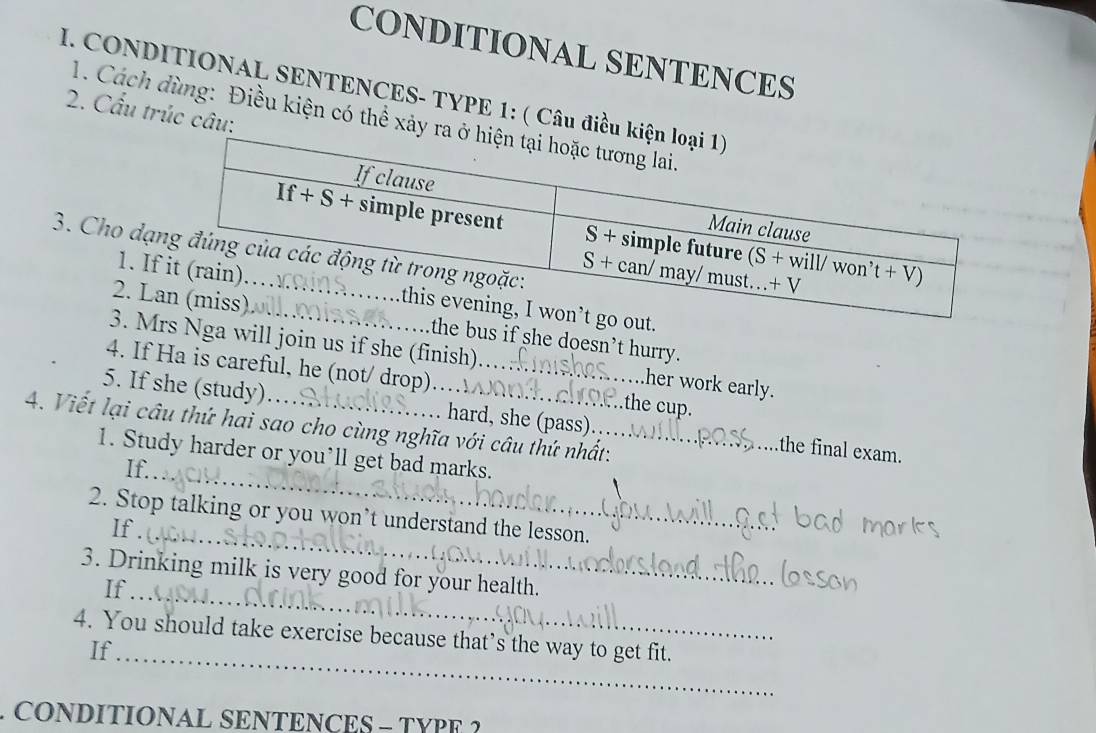 CONDITIONAL SENTENCES
I. CONDITIONAL SENTENCES- TYPE 1: ( Câu điều kiện loại 1)
1. Cách dùng: Điều kiện có thể xảy ra ở hiện tại hoặc tương lai.
2. Cấu trúc câu:
If clause
Main clause
If + S + simple present
S + simple future (S + will/ won't + V)
S + can/ may/ must...+ V
3. Cho dạng đúng của các động từ trong ngoặc:
1. If it (rain)....rains....this evening, I won't go out.
2. Lan (miss) will misses the bus if she doesn't hurry.
3. Mrs Nga will join us if she (finish)....finishes....her work early.
4. If Ha is careful, he (not/ drop)....won't drop....the cup.
5. If she (study)....studies.... hard, she (pass)....will pass....the final exam.
4. Viết lại câu thứ hai sao cho cùng nghĩa với câu thứ nhất:
1. Study harder or you'll get bad marks.
If...you don't study harder, you will get bad marks
2. Stop talking or you won't understand the lesson.
If . you stop talking you will understand the lesson
3. Drinking milk is very good for your health.
If ... you drink milk, you will
4. You should take exercise because that's the way to get fit.
If ....................
. CONDITIONAL SENTENCES – TYPE 2